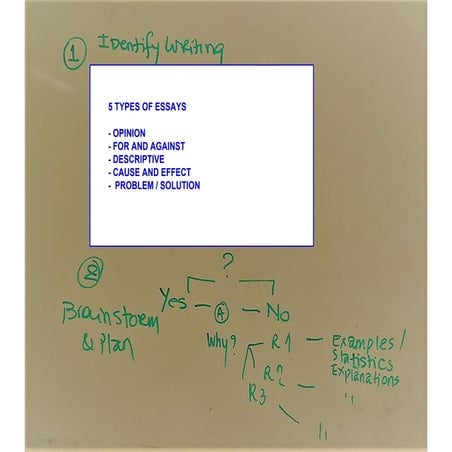 1 Identify Writing
5 TYPES OF ESSAYS
- OPINION
- FOR AND AGAINST
- DESCRIPTIVE
- CAUSE AND EFFECT
- PROBLEM / SOLUTION
2
?
Yes — A — No
Brainstorm & Plan
Why? R1 — Examples /
Statistics
Explanations
R2 — "
R3 "